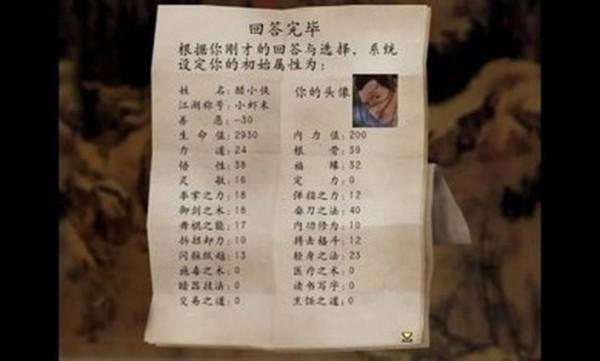 回答完毕
根据你刚才的回答与选择，系统
设定你的初始属性为：
姓 名：醋小侠 你的头像
江湖称号：小虾米
善 恶：-30
生 命 值：2930 内 力 值：200
力 道：24 根 骨：39
悟 性：38 福 缘：32
灵 敏：16 定 力：0
拳掌之力：18 弹指之力：12
御剑之术：18 耍刀之法：40
舞棍之能：17 内功修为：10
拆招卸力：10 搏击格斗：12
闪躲纵跃：13 轻身之法：23
施毒之术：0 医疗之术：0
暗器技法：0 读书写字：0
交易之道：0 烹饪之道：0